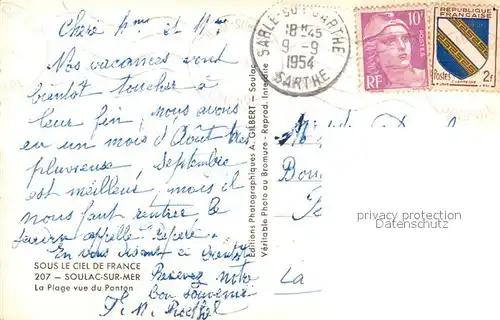 Chers Mme et Mr
Vos vacances vont
bientôt toucher à
leur fin, nous avons
eu un mois d'Août très
pluvieux, Septembre
est meilleur, mais il
nous faut rentrer, le
appelle
En vous disant à bientôt
Recevez notre
bon souvenir
SOUS LE CIEL DE FRANCE
207 - SOULAC-SUR-MER
La Plage vue du Ponton
Editions Photographiques A. GILBERT - Soulac
Véritable Photo au Bromure - Reprod. Interdite
SABLÉ-SUR-SARTHE
18H45
9-9
1954
SARTHE
10F
POSTES
RF
RÉPUBLIQUE FRANÇAISE
Postes 2f
CHAMPAGNE
privacy protection
Datenschutz
La